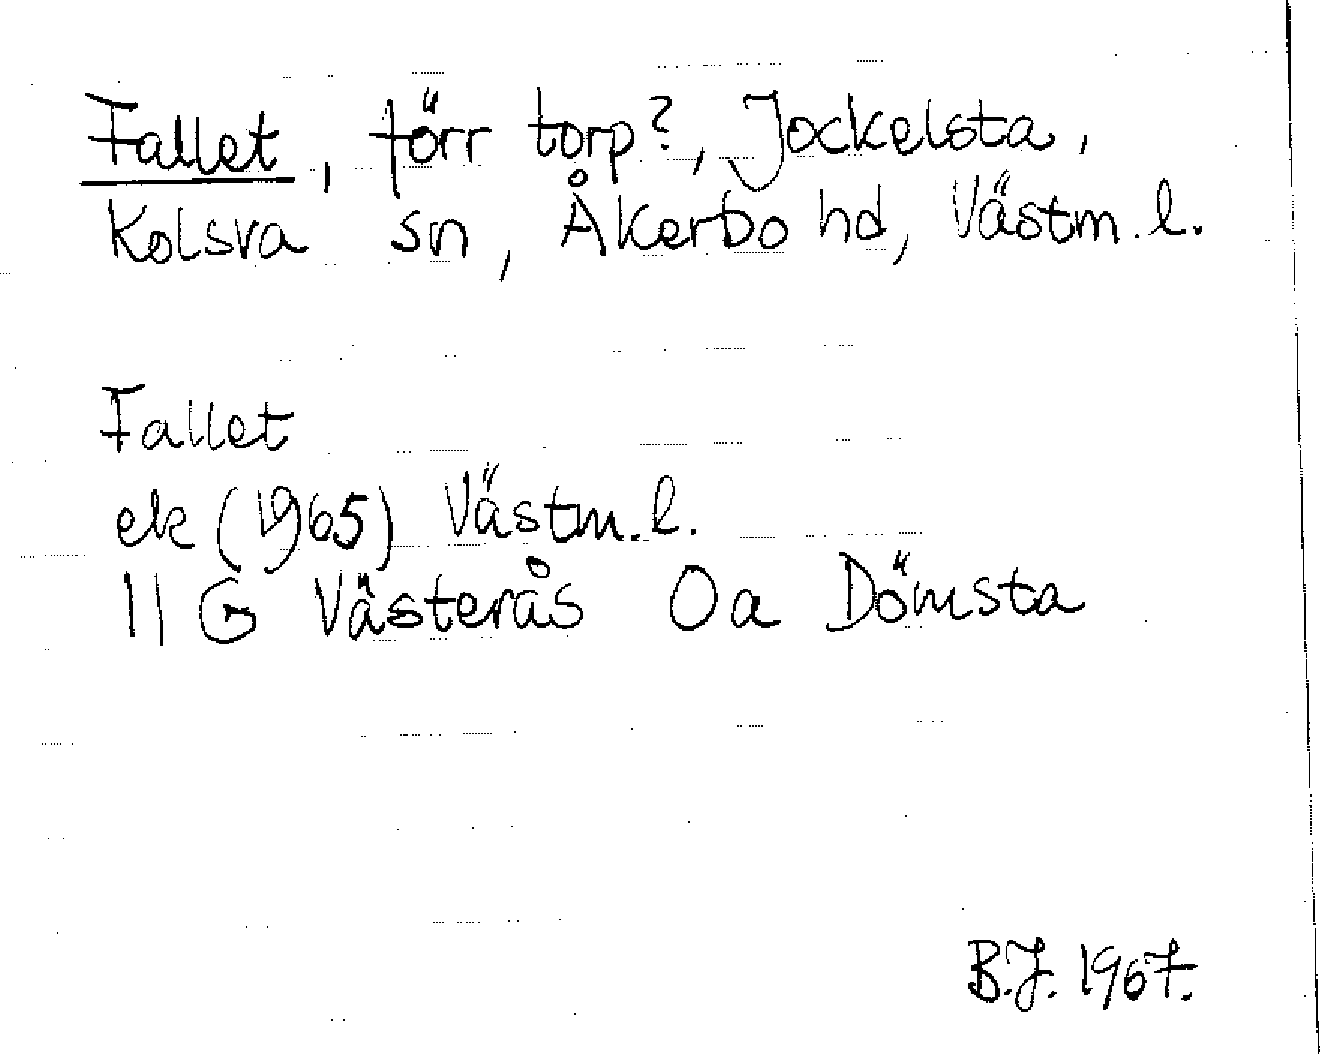 Fallet, förr torp?, Jockelsta,
Kolsva sn, Åkerbo hd, Västm. l.
Fallet
ek (1965) Västm. l.
11 G Västerås 0a Dömsta
B.J. 1967.